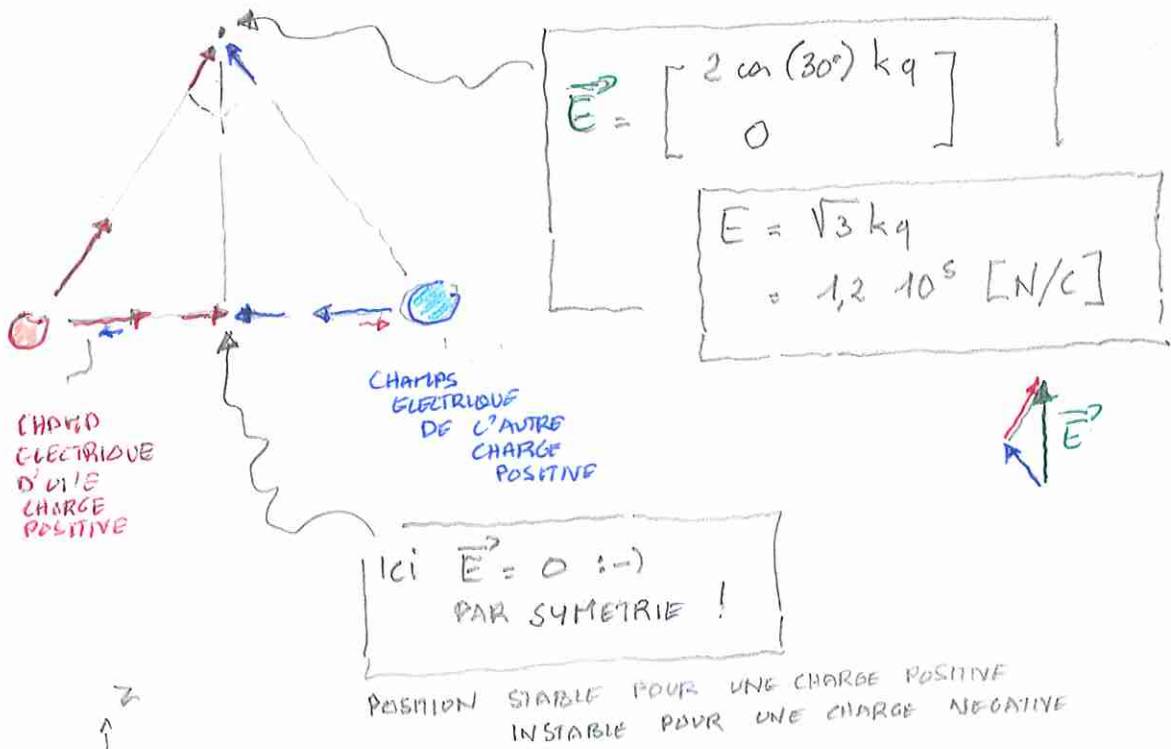 E = [ 2 cos (30°) k q
0 ]
E = √3 k q
= 1,2 10⁵ [N/C]
CHAMP
ELECTRIQUE
D'UNE
CHARGE
POSITIVE
CHAMPS
ELECTRIQUE
DE L'AUTRE
CHARGE
POSITIVE
E
Ici E = 0 :-)
PAR SYMETRIE !
POSITION STABLE POUR UNE CHARGE POSITIVE
INSTABLE POUR UNE CHARGE NEGATIVE
z